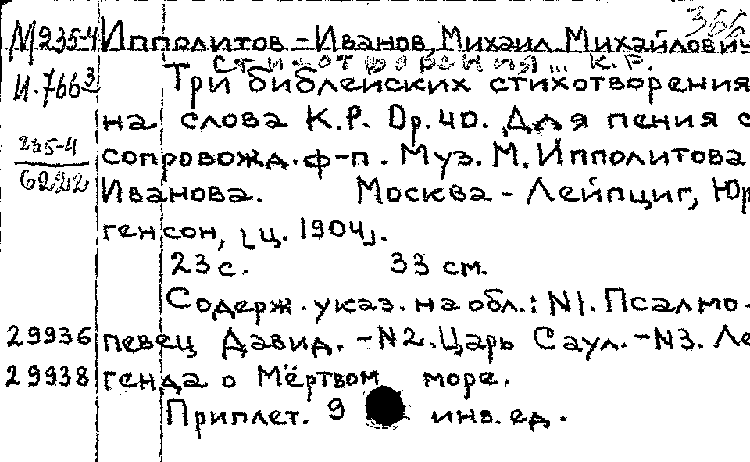 366
М235-4 Ипполитов-Иванов, Михаил Михайлович
стихотворения... К.Р.
И.766³ Три библейских стихотворения
на слова К.Р. Ор.40. Для пения с
235-4 сопровожд. ф-п. Муз. М. Ипполитова
Иванова. Москва - Лейпциг, Юр
генсон, [ц. 1904].
23 с. 33 см.
Содерж. указ. на обл.: N1. Псалмо-
29936 певец Давид. - N2. Царь Саул. - N3. Ле
29938 генда о Мёртвом море.
Приплет. 9 инв. ед.